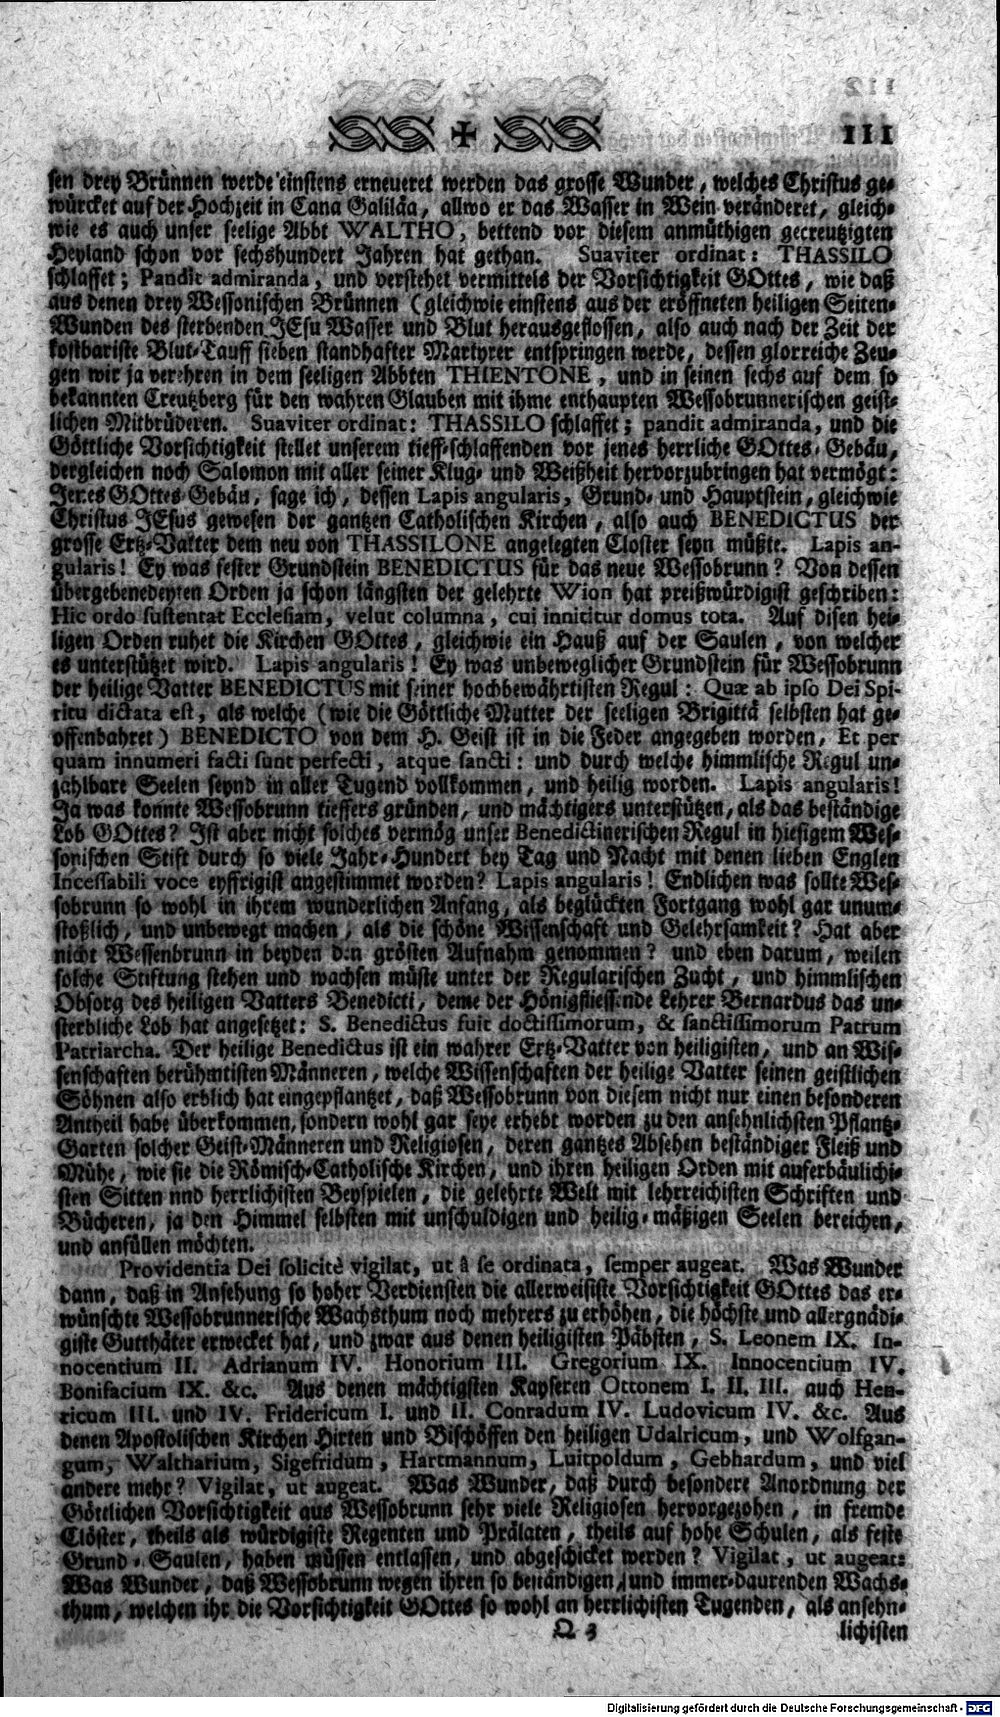 111
sen drey Brünnen werde einstens erneueret werden das grosse Wunder, welches Christus ge-
würcket auf der Hochzeit in Cana Galiläa, allwo er das Wasser in Wein veränderet, gleich-
wie es auch unser seelige Abbt WALTHO, bettend vor diesem anmüthigen gecreutzigten
Heyland schon vor sechshundert Jahren hat gethan. Suaviter ordinat: THASSILO
schlaffet; Pandit admiranda, und verstehet vermittels der Vorsichtigkeit GOttes, wie daß
aus denen drey Wessonischen Brünnen (gleichwie einstens aus der eröffneten heiligen Seiten-
Wunden des sterbenden JEsu Wasser und Blut herausgeflossen, also auch nach der Zeit der
kostbariste Blut-Tauff sieben standhafter Martyrer entspringen werde, dessen glorreiche Zeu-
gen wir ja verehren in dem seeligen Abbten THIENTONE, und in seinen sechs auf dem so
bekannten Creutzberg für den wahren Glauben mit ihme enthaupten Wessobrunnerischen geist-
lichen Mitbrüderen. Suaviter ordinat: THASSILO schlaffet; pandit admiranda, und die
Göttliche Vorsichtigkeit stellet unserem tieff-schlaffenden vor jenes herrliche GOttes-Gebäu,
dergleichen noch Salomon mit aller seiner Klug- und Weißheit hervorzubringen hat vermögt:
Jenes GOttes-Gebäu, sage ich, dessen Lapis angularis, Grund- und Hauptstein, gleichwie
Christus JEsus gewesen der gantzen Catholischen Kirchen, also auch BENEDICTUS der
grosse Ertz-Vatter dem neu von THASSILONE angelegten Closter seyn müßte. Lapis an-
gularis! Ey was fester Grundstein BENEDICTUS für das neue Wessobrunn? Von dessen
übergebenedeyten Orden ja schon längsten der gelehrte Wion hat preißwürdigist geschriben:
Hic ordo sustentat Ecclesiam, velut columna, cui innititur domus tota. Auf disen hei-
ligen Orden ruhet die Kirchen GOttes, gleichwie ein Hauß auf der Saulen, von welcher
es unterstützet wird. Lapis angularis! Ey was unbeweglicher Grundstein für Wessobrunn
der heilige Vatter BENEDICTUS mit seiner hochbewährtisten Regul: Quæ ab ipso Dei Spi-
ritu dictata est, als welche (wie die Göttliche Mutter der seeligen Brigittä selbsten hat ge-
offenbahret) BENEDICTO von dem H. Geist ist in die Feder angegeben worden, Et per
quam innumeri facti sunt perfecti, atque sancti: und durch welche himmlische Regul un-
zahlbare Seelen seynd in aller Tugend vollkommen, und heilig worden. Lapis angularis!
Ja was konnte Wessobrunn tieffers gründen, und mächtigers unterstützen, als das beständige
Lob GOttes? Ist aber nicht solches vermög unser Benedictinerischen Regul in hiesigem Wes-
sonischen Stift durch so viele Jahr-Hundert bey Tag und Nacht mit denen lieben Englen
Incessabili voce eyffrigist angestimmet worden? Lapis angularis! Endlichen was sollte Wes-
sobrunn so wohl in ihrem wunderlichen Anfang, als beglückten Fortgang wohl gar unum-
stoßlich, und unbewegt machen, als die schöne Wissenschaft und Gelehrsamkeit? Hat aber
nicht Wessenbrunn in beyden den grösten Aufnahm genommen? und eben darum, weilen
solche Stiftung stehen und wachsen müste unter der Regularischen Zucht, und himmlischen
Obsorg des heiligen Vatters Benedicti, deme der Hönigfliessende Lehrer Bernardus das un-
sterbliche Lob hat angesetzet: S. Benedictus fuit doctissimorum, & sanctissimorum Patrum
Patriarcha. Der heilige Benedictus ist ein wahrer Ertz-Vatter von heiligisten, und an Wis-
senschaften berühmtisten Männeren, welche Wissenschaften der heilige Vatter seinen geistlichen
Söhnen also erblich hat eingepflantzet, daß Wessobrunn von diesem nicht nur einen besonderen
Antheil habe überkommen, sondern wohl gar seye erhebt worden zu den ansehnlichsten Pflantz-
Garten solcher Geist-Männeren und Religiosen, deren gantzes Absehen beständiger Fleiß und
Mühe, wie sie die Römisch-Catholische Kirchen, und ihren heiligen Orden mit auferbäulichi-
sten Sitten nnd herrlichisten Beyspielen, die gelehrte Welt mit lehrreichisten Schriften und
Bücheren, ja den Himmel selbsten mit unschuldigen und heilig-mäßigen Seelen bereichen,
und anfüllen möchten.
Providentia Dei solicitè vigilat, ut â se ordinata, semper augeat. Was Wunder
dann, daß in Ansehung so hoher Verdiensten die allerweisiste Vorsichtigkeit GOttes das er-
wünschte Wessobrunnerische Wachsthum noch mehrers zu erhöhen, die höchste und allergnädi-
giste Gutthäter erwecket hat, und zwar aus denen heiligisten Päbsten, S. Leonem IX. In-
nocentium II. Adrianum IV. Honorium III. Gregorium IX. Innocentium IV.
Bonifacium IX. &c. Aus denen mächtigsten Kayseren Ottonem I. II. III. auch Hen-
ricum III. und IV. Fridericum I. und II. Conradum IV. Ludovicum IV. &c. Aus
denen Apostolischen Kirchen Hirten und Bischöffen den heiligen Udalricum, und Wolfgan-
gum, Waltharium, Sigefridum, Hartmannum, Luitpoldum, Gebhardum, und viel
andere mehr? Vigilat, ut augeat. Was Wunder, daß durch besondere Anordnung der
Göttlichen Vorsichtigkeit aus Wessobrunn sehr viele Religiosen hervorgezohen, in fremde
Clöster, theils als würdigiste Regenten und Prälaten, theils auf hohe Schulen, als feste
Grund-Saulen, haben müssen entlassen, und abgeschicket werden? Vigilat, ut augeat:
Was Wunder, daß Wessobrunn wegen ihren so beständigen, und immer-daurenden Wachs-
thum, welchen ihr die Vorsichtigkeit GOttes so wohl an herrlichisten Tugenden, als ansehn-
Q 3 lichisten
Digitalisierung gefördert durch die Deutsche Forschungsgemeinschaft - DFG